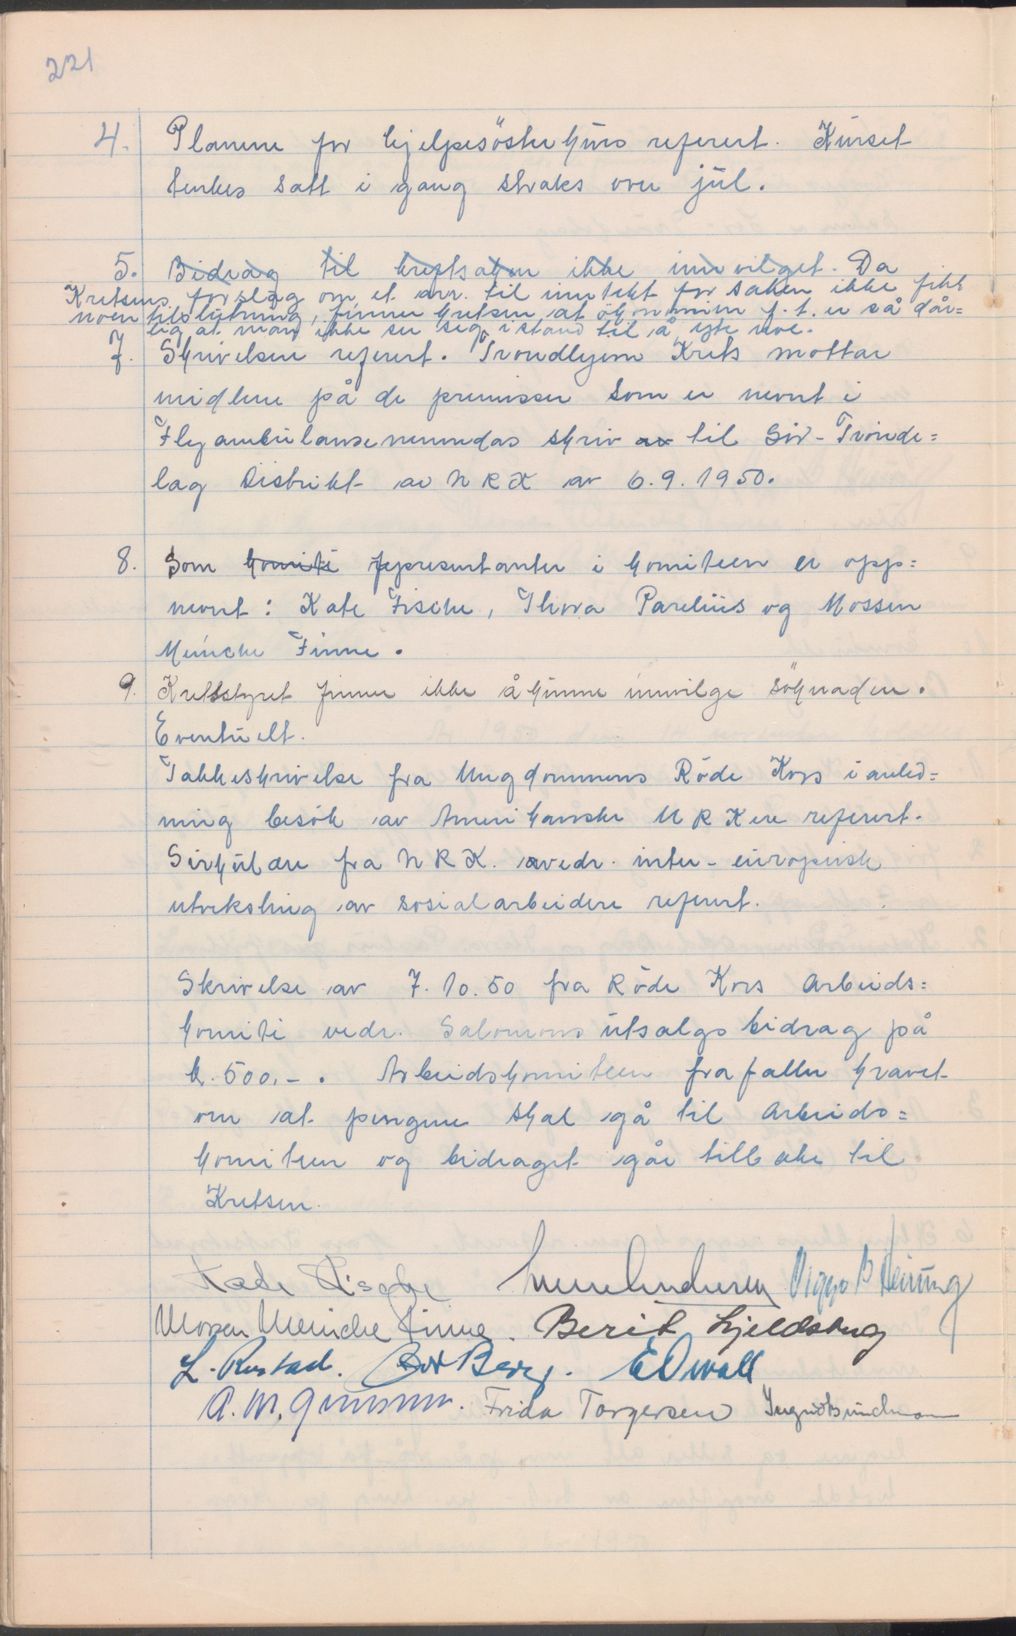 221
4. Planene for hjelpesösterkurs referert. Kurset
tenkes satt i gang straks over jul.
5. Bidrag til kreftsaken ikke innvilget. Da
Kretsens forslag om et arr. til inntekt for saken ikke fikk
noen tilslutning, finner kretsen at ökonomien f.t. er så dår=
lig at man ikke ser seg istand til å yte noe.
7. Skrivelsen referert. Trondhjem Krets mottar
midlene på de premisser som er nevnt i
Flyambulansenemndas skriv av til Sör-Trönde=
lag Distrikt av N R K av 6.9.1950.
8. Som komite representanter i komiteen er opp=
nevnt: Kate Fische, Thora Parelius og Mossen
Meincke Finne.
9. Kretsstyret finner ikke å kunne innvilge söknaden.
Eventuelt.
Takkeskrivelse fra Ungdommens Röde Kors i anled=
ning besök av Amerikanske U R K ere referert.
Sirkulære fra N R K. avedr. inter-europeisk
utveksling av sosialarbeidere referert.
Skrivelse av 7.10.50 fra Röde Kors Arbeids=
komite vedr. Salomons utsalgs bidrag på
k. 500,-. Arbeidskomiteen frafaller kravet
om at pengene skal gå til Arbeids=
komiteen og bidraget går tilbake til
Kretsen.
Kate Fische Viggo B
Mossen Meincke Finne. Berit Hjeldsberg
L. Rustad. Berg. E Owall
A. M. Frida Torgersen